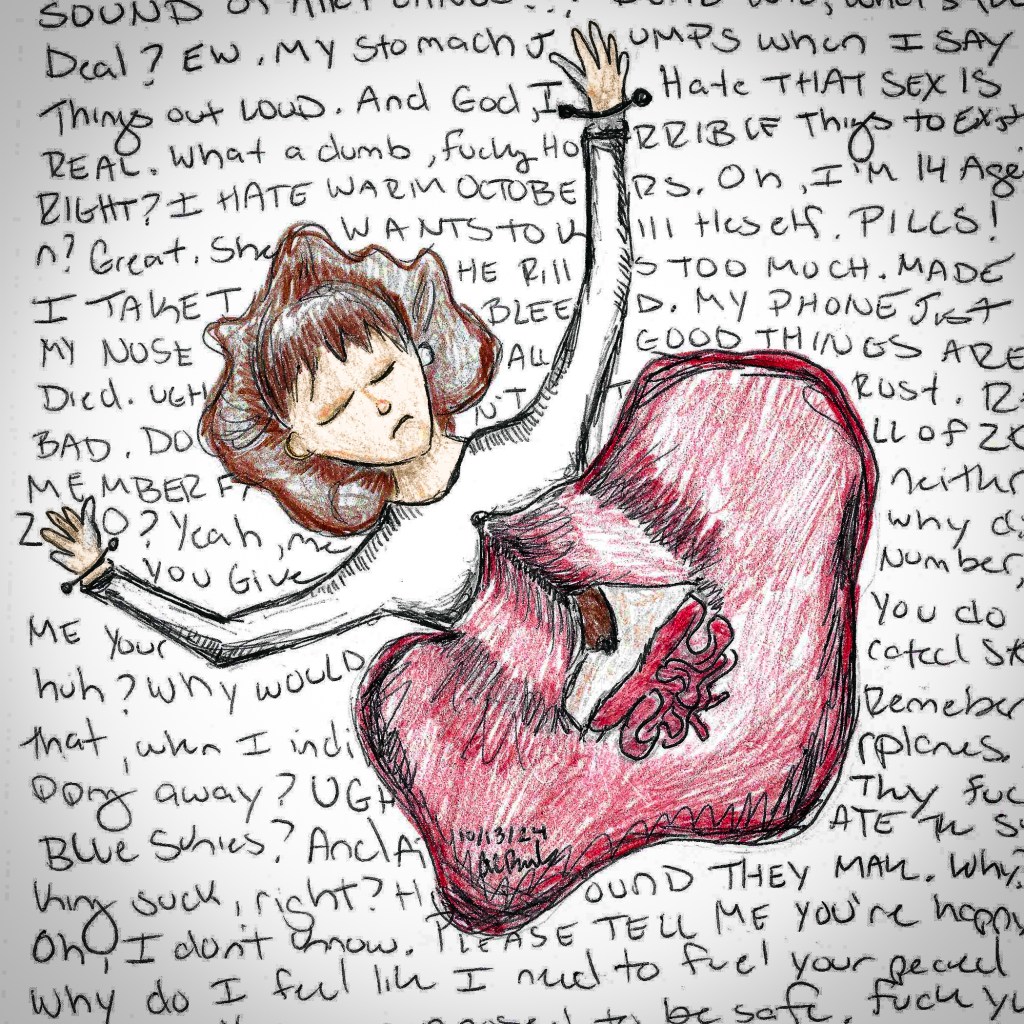 SOUND OF
Deal? EW. MY Stomach JUMPS when I SAY
Things out LOUD. And God, I Hate THAT SEX IS
REAL. What a dumb, fucky HORRIBLE Things to Exist
RIGHT? I HATE WARM OCTOBERS. Oh, I'M 14 Age
n? Great. She WANTS TO Kill Heself. PILLS!
I TAKE THE Rills TOO MUCH. MADE
MY NOSE BLEED. MY PHONE Just
Died. UGH ALL GOOD THINGS ARE
BAD. DON'T TRUSt. R
MEMBER ALL of 20
20? Yeah, me neithr
YOU GIVE why di
ME YOUR Number,
huh? Why WOULD YOU do
that, when I indicated
Dong away? UGH Remeber
Blue Skies? And Airplanes.
king suck, right? HATE Th S Thy fuc
OUND THEY MAK. Why?
Oh, I don't know. PLEASE TELL ME YOU're happy
Why do I feel lik I need to fuel your
to be safe. fuck yu
10/13/24